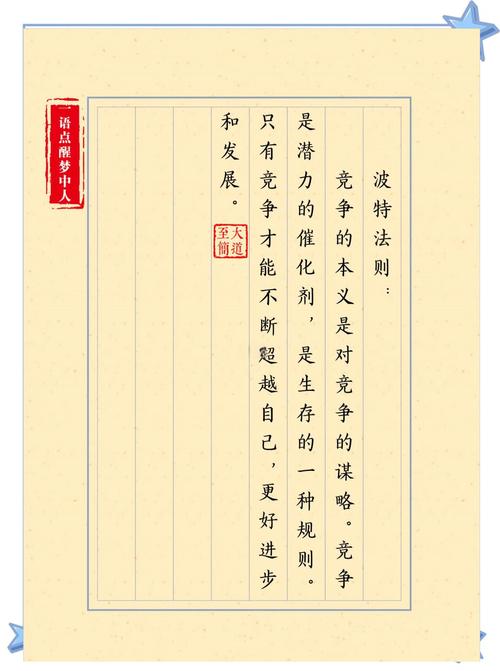 波特法则：
竞争的本义是对竞争的谋略。竞争
是潜力的催化剂，是生存的一种规则。
只有竞争才能不断超越自己，更好进步
和发展。
大道
至簡
一语点醒梦中人